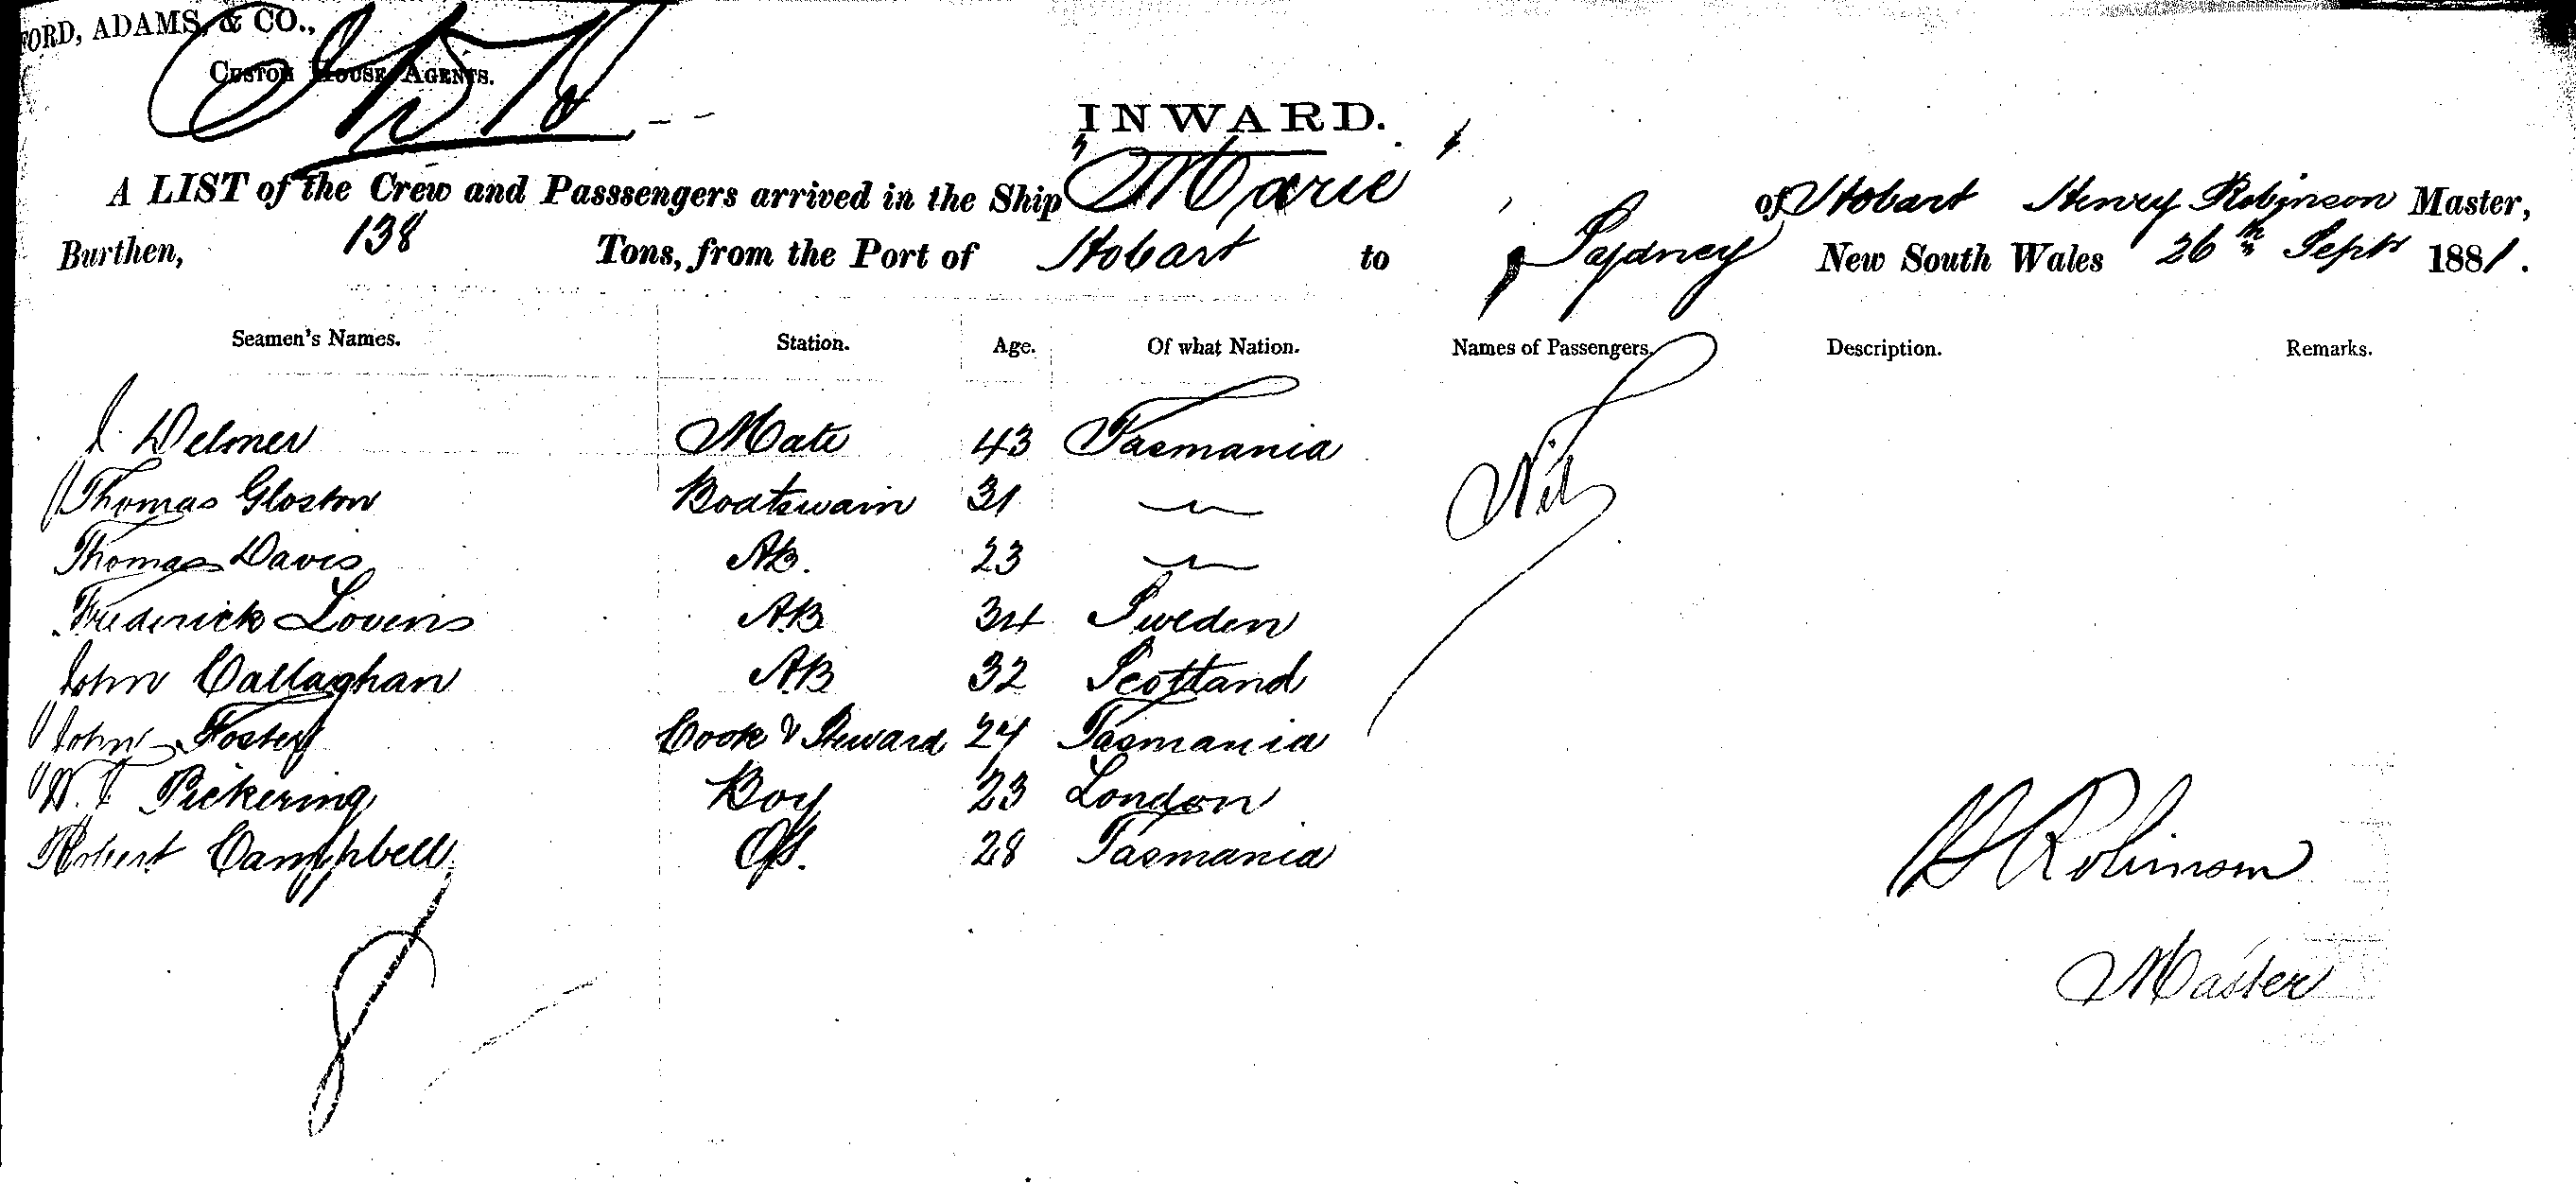 FORD, ADAMS, & CO.,
CUSTOM HOUSE AGENTS.
INWARD.
A LIST of the Crew and Passsengers arrived in the Ship "Marie" of Hobart Henry Robinson Master,
Burthen, 138 Tons, from the Port of Hobart to Sydney New South Wales 26th Sept 1881.
Seamen's Names. Station. Age. Of what Nation. Names of Passengers. Description. Remarks.
J. Delmer Mate 43 Tasmania Nil
Thomas Gloston Boatswain 31 "
Thomas Davis AB. 23 "
Frederick Lovens AB 34 Sweden
John Callaghan AB 32 Scotland
John Foster Cook & Steward 24 Tasmania
W. Pickering Boy 23 London
Robert Campbell OS. 28 Tasmania
H Robinson
Master